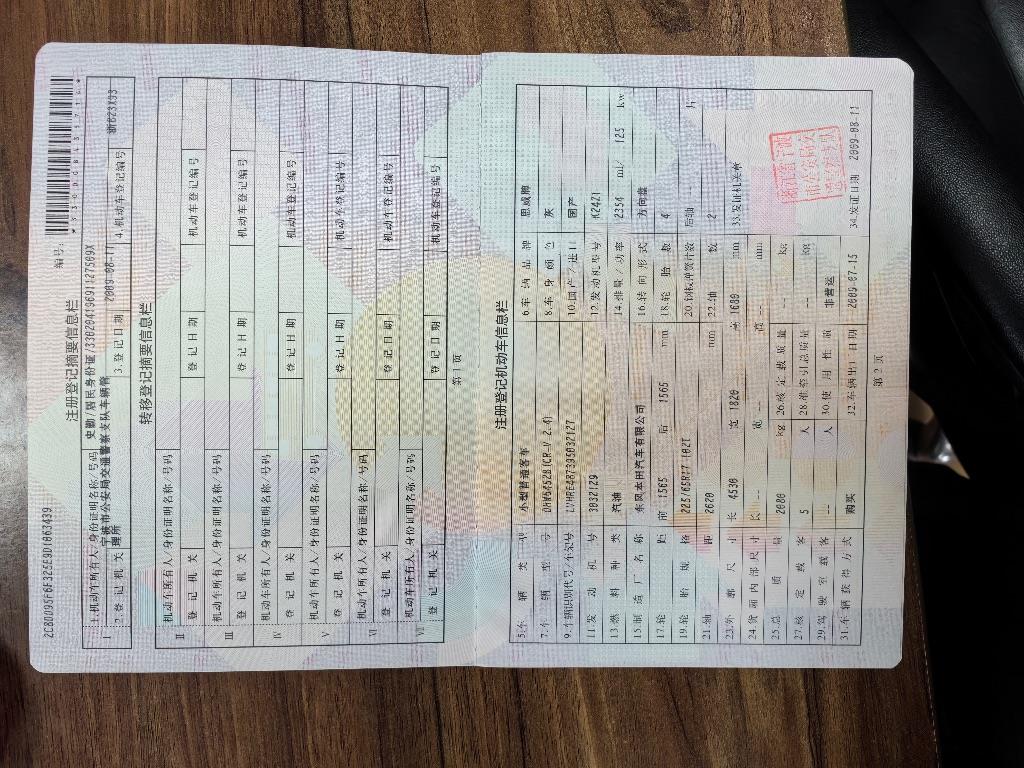 2C80D095F6F325E9D1663439
注册登记摘要信息栏
编号:
I
1.机动车所有人/身份证明名称/号码
史勤/居民身份证/33020419691127509X
2.登记机关
宁波市公安局交通警察支队车辆管理所
3.登记日期
2009-08-11
4.机动车登记编号
浙B23X93
转移登记摘要信息栏
II
机动车所有人/身份证明名称/号码
登记机关 登记日期 机动车登记编号
III
机动车所有人/身份证明名称/号码
登记机关 登记日期 机动车登记编号
IV
机动车所有人/身份证明名称/号码
登记机关 登记日期 机动车登记编号
V
机动车所有人/身份证明名称/号码
登记机关 登记日期 机动车登记编号
VI
机动车所有人/身份证明名称/号码
登记机关 登记日期 机动车登记编号
VII
机动车所有人/身份证明名称/号码
登记机关 登记日期 机动车登记编号
第1页
注册登记机动车信息栏
5.车辆类型 小型普通客车 6.车辆品牌 思威牌
7.车辆型号 DHW6452B(CR-V 2.4) 8.车身颜色 灰
9.车辆识别代号/车架号 LVHRE487395032127 10.国产/进口 国产
11.发动机号 3032129 12.发动机型号 K24Z1
13.燃料种类 汽油 14.排量/功率 2354 ml/ 125 kw
15.制造厂名称 东风本田汽车有限公司 16.转向形式 方向盘
17.轮距 前 1565 后 1565 mm 18.轮胎数 4
19.轮胎规格 225/65R17 102T 20.钢板弹簧片数 后轴 -- 片
21.轴距 2620 mm 22.轴数 2
23.外廓尺寸 长 4530 宽 1820 高 1680 mm 33.发证机关章
24.货厢内部尺寸 长 -- 宽 -- 高 -- mm
25.总质量 2080 kg 26.核定载质量 -- kg
27.核定载客 5 人 28.准牵引总质量 -- kg
29.驾驶室载客 -- 人 30.使用性质 非营运
31.车辆获得方式 购买 32.车辆出厂日期 2009-07-15 34.发证日期 2009-08-11
第2页